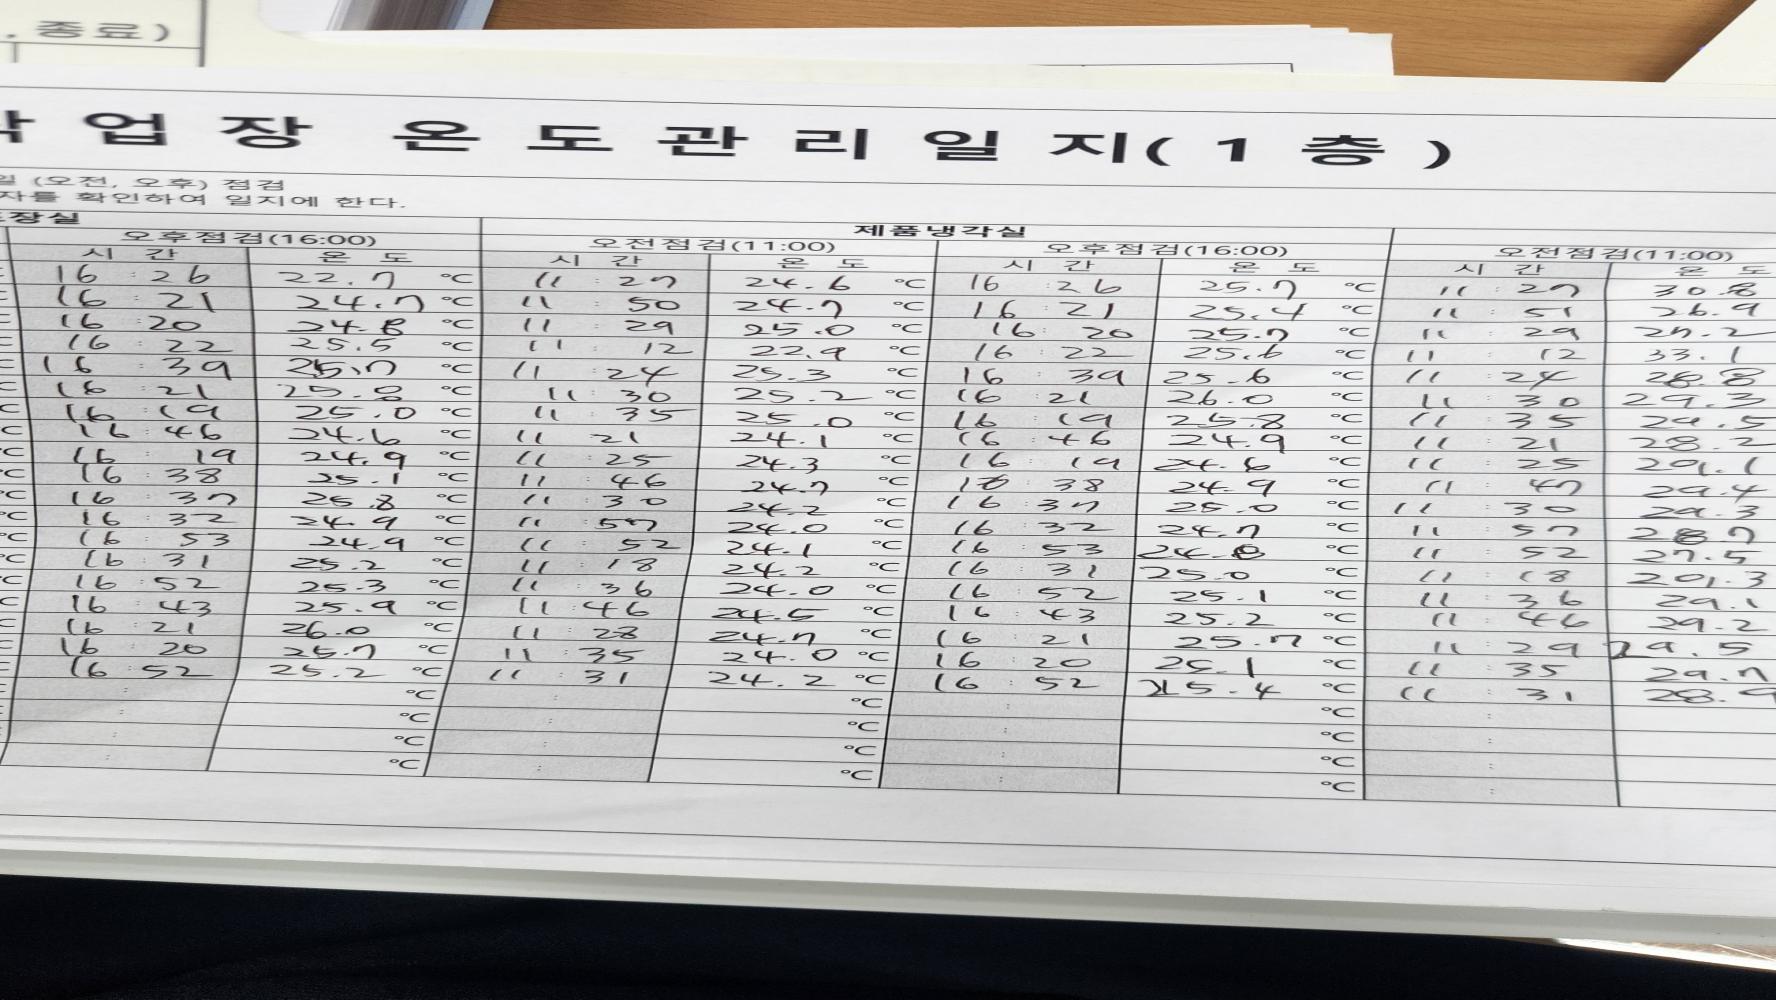 , 종료)
업 장 온 도 관 리 일 지( 1 층 )
일 (오전, 오후) 점검
자를 확인하여 일지에 한다.
장실 제품냉각실
오후점검(16:00) 오전점검(11:00) 오후점검(16:00) 오전점검(11:00)
시 간 온 도 시 간 온 도 시 간 온 도 시 간 온 도
16 : 26 22.7 ℃ 11 : 27 24.6 ℃ 16 : 26 25.7 ℃ 11 : 27 30.8
16 : 21 24.7 ℃ 11 : 50 24.7 ℃ 16 : 21 25.4 ℃ 11 : 51 26.9
16 : 20 24.8 ℃ 11 : 29 25.0 ℃ 16 : 20 25.7 ℃ 11 : 29 27.2
16 : 22 25.5 ℃ 11 : 12 22.9 ℃ 16 : 22 25.6 ℃ 11 : 12 33.1
16 : 39 25.7 ℃ 11 : 24 25.3 ℃ 16 : 39 25.6 ℃ 11 : 24 28.8
16 : 21 25.8 ℃ 11 : 30 25.2 ℃ 16 : 21 26.0 ℃ 11 : 30 29.3
16 : 19 25.0 ℃ 11 : 35 25.0 ℃ 16 : 19 25.8 ℃ 11 : 35 29.5
16 : 46 24.6 ℃ 11 : 21 24.1 ℃ 16 : 46 24.9 ℃ 11 : 21 28.2
16 : 19 24.9 ℃ 11 : 25 24.3 ℃ 16 : 19 24.6 ℃ 11 : 25 29.1
16 : 38 25.1 ℃ 11 : 46 24.7 ℃ 16 : 38 24.9 ℃ 11 : 47 29.4
16 : 37 25.8 ℃ 11 : 30 24.2 ℃ 16 : 37 25.0 ℃ 11 : 30 29.3
16 : 32 24.9 ℃ 11 : 57 24.0 ℃ 16 : 32 24.7 ℃ 11 : 57 28.7
16 : 53 24.9 ℃ 11 : 52 24.1 ℃ 16 : 53 ℃ 11 : 52 27.5
16 : 31 25.2 ℃ 11 : 18 24.2 ℃ 16 : 31 25.0 ℃ 11 : 18 29.3
16 : 52 25.3 ℃ 11 : 36 24.0 ℃ 16 : 52 25.1 ℃ 11 : 36 29.1
16 : 43 25.9 ℃ 11 : 46 24.5 ℃ 16 : 43 25.2 ℃ 11 : 46 29.2
16 : 21 26.0 ℃ 11 : 28 24.7 ℃ 16 : 21 25.7 ℃ 11 : 29 29.5
16 : 20 25.7 ℃ 11 : 35 24.0 ℃ 16 : 20 25.1 ℃ 11 : 35 29.7
16 : 52 25.2 ℃ 11 : 31 24.2 ℃ 16 : 52 25.4 ℃ 11 : 31 28.9
: ℃ : ℃ : ℃ :
: ℃ : ℃ : ℃ :
: ℃ : ℃ : ℃ :
: ℃ : ℃ : ℃ :